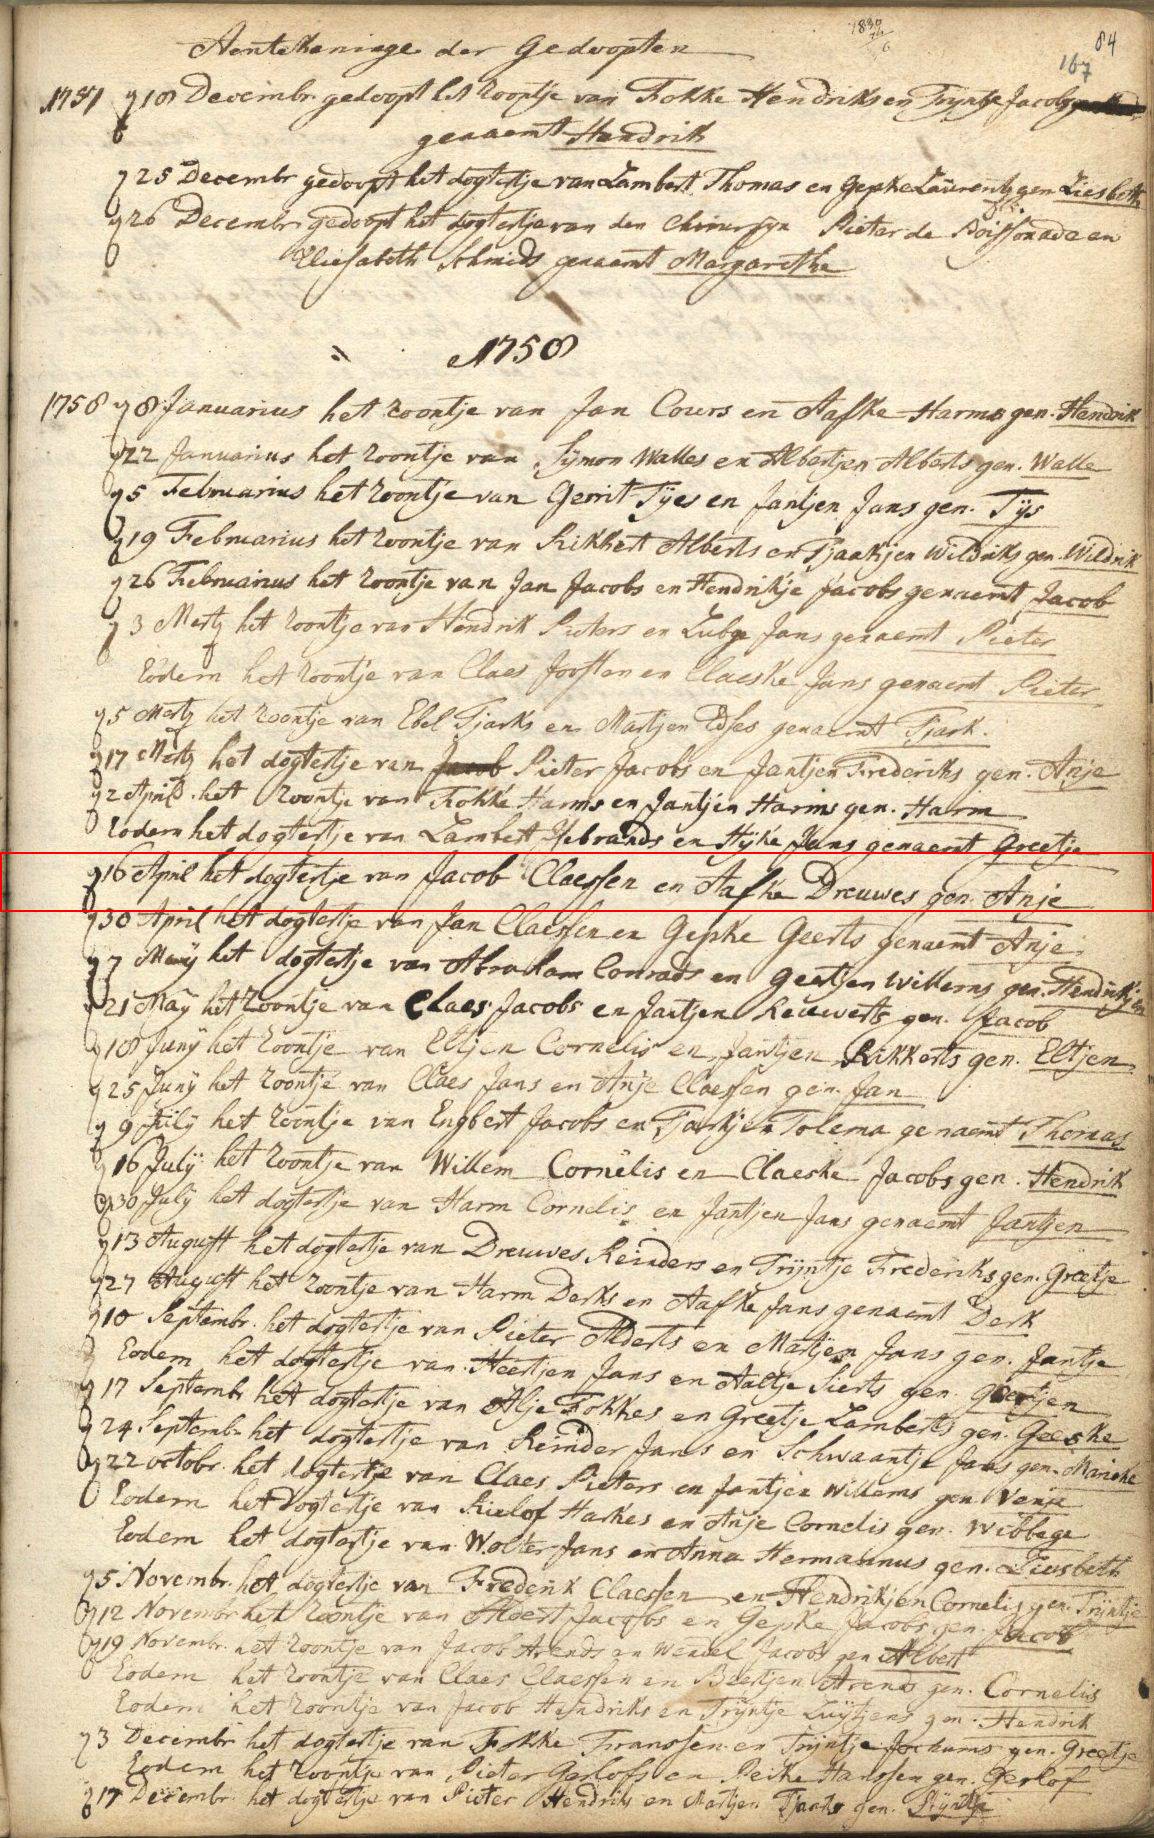 Aentekeninge der Gedoopten
1830
84
167
1757 d 18 Decembr. gedoopt het zoontje van Fokke Hendriks en Tryntje Jacobs
genaemt Hendrik
d 25 Decembr gedoopt het dogtertje van Lambert Thomas en Gepke Laurents gen Liesbeth
d 26 Decembr. gedoopt het dogtertje van den Chirurgyn Pieter de Boissonade en
Eliesabeth Schmids genaemt Margarethe
1758
1758 d 8 Januarius het zoontje van Jan Cours en Aafke Harms gen. Hendrik
d 22 Januarius het zoontje van Symon Walles en Albertjen Alberts gen. Walle
d 5 Februarius het zoontje van Gerrit Tÿes en Jantjen Jans gen. Tÿs
d 19 Februarius het zoontje van Rikkert Alberts en Tjaakjen Wildriks gen. Wildrik
d 26 Februarius het zoontje van Jan Jacobs en Hendrikje Jacobs genaemt Jacob
d 3 Mertz het zoontje van Hendrik Pieters en Lubge Jans genaemt Pieter
Eodem het zoontje van Claes Joosten en Claeske Jans genaemt Pieter
d 5 Mertz het zoontje van Ebel Tjarks en Martjen Edses genaemt Tjark.
d 17 Mertz het dogtertje van Jacob Pieter Jacobs en Jantjen Frederiks gen. Anje
d 2 April. het zoontje van Fokke Harms en Jantjen Harms gen. Harm
Eodem het dogtertje van Lambert Ysebrands en Hÿke Jans genaemt Greetje
d 16 April het dogtertje van Jacob Claessen en Aafke Dreuwes gen. Anje
d 30 April het dogtertje van Jan Claessen en Gepke Geerts genaemt Anje
d 7 Maÿ het dogtertje van Abraham Conrads en Geertjen Willems gen. Hendrikjen
d 21 Maÿ het zoontje van Claes Jacobs en Jantjen Reuwerts gen. Jacob
d 18 Junÿ het zoontje van Eltjen Cornelis en Jantjen Rikkerts gen. Eltjen
d 25 Junÿ het zoontje van Claes Jans en Anje Claessen gen. Jan
d 9 Julÿ het zoontje van Engbert Jacobs en Tjaakjen Tolema genaemt Thomas
d 16 Julÿ het zoontje van Willem Cornelis en Claeske Jacobs gen. Hendrik
d 30 Julÿ het dogtertje van Harm Cornelis en Jantjen Jans genaemt Jantjen
d 13 August het dogtertje van Dreuwes Reinders en Trÿntje Frederiks gen. Greetje
d 27 August het zoontje van Harm Derks en Aafke Jans genaemt Derk
d 10 Septembr. het dogtertje van Pieter Alderts en Martjen Jans gen. Jantje
Eodem het dogtertje van Heertjen Jans en Aaltje Sierts gen. Geertjen
d 17 Septembr het dogtertje van Alje Fokkes en Greetje Lamberts gen. Geeske
d 24 Septemb. het dogtertje van Reinder Jans en Schwaantje Jans gen. Marieke
d 22 octobr. het dogtertje van Claes Pieters en Jantjen Willems gen
Eodem het dogtertje van Rielof Harkes en Anje Cornelis gen. Wibbege
Eodem het dogtertje van Wolter Jans en Anna Hermannus gen. Liesbeth
d 5 Novembr. het dogtertje van Frederik Claessen en Hendrikjen Cornelis gen. Trÿntje
d 12 Novembr het zoontje van Albert Jacobs en Gepke Jacobs gen. Jacob
d 19 Novembr. het zoontje van Jacob Arends en Jacobs gen Albert
Eodem het zoontje van Claes Claessen en Beertjen Arends gen. Cornelis
Eodem het zoontje van Jacob Hendriks en Trÿntje Luÿtjens gen. Hendrik
d 3 Decembr het dogtertje van Fokke Franssen en Trÿntje Jochums gen. Greetje
Eodem het zoontje van Pieter Gerlofs en Peike Hanssen gen. Gerlof
d 17 Decembr. het dogtertje van Pieter Hendriks en Martjen Tjarks gen. Trÿntje